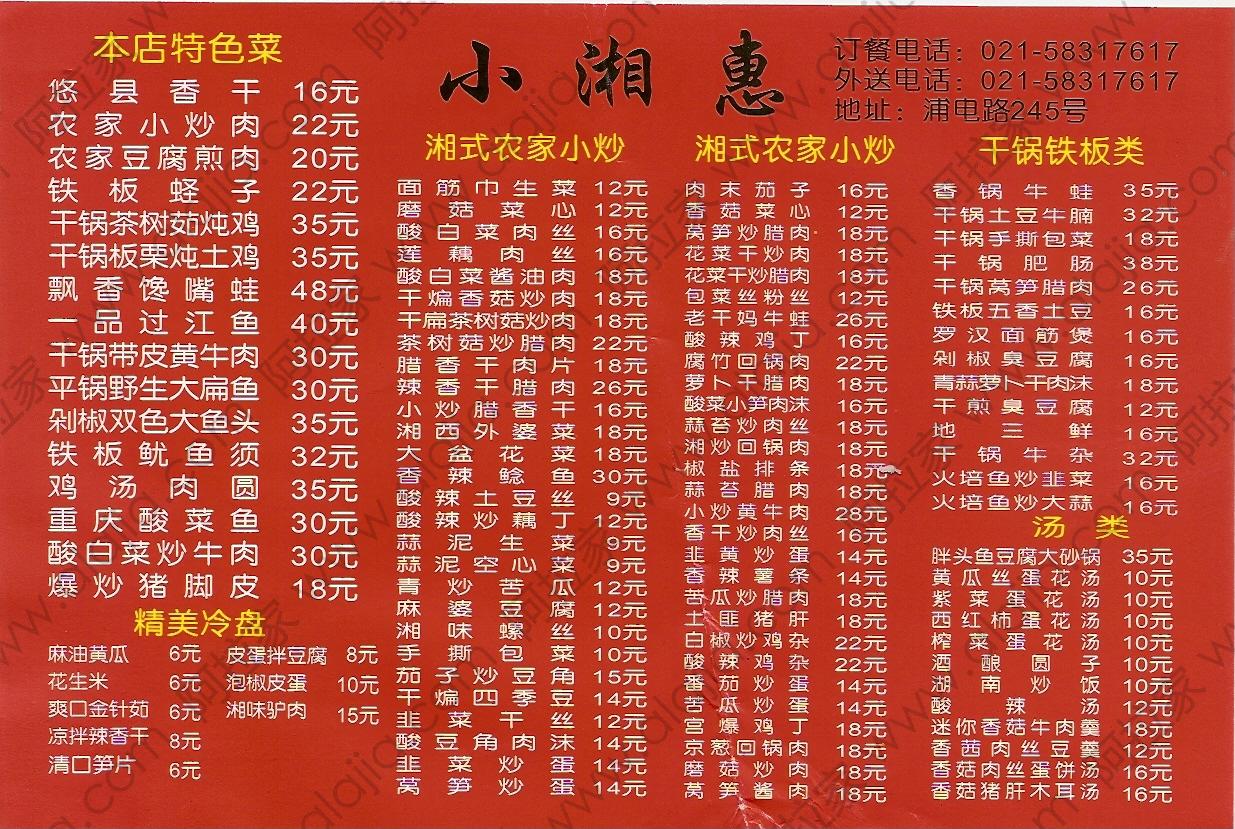 小湘惠
订餐电话：021-58317617
外送电话：021-58317617
地址：浦电路245号
本店特色菜
悠县香干 16元
农家小炒肉 22元
农家豆腐煎肉 20元
铁板蛏子 22元
干锅茶树茹炖鸡 35元
干锅板栗炖土鸡 35元
飘香馋嘴蛙 48元
一品过江鱼 40元
干锅带皮黄牛肉 30元
平锅野生大扁鱼 30元
剁椒双色大鱼头 35元
铁板鱿鱼须 32元
鸡汤肉圆 35元
重庆酸菜鱼 30元
酸白菜炒牛肉 30元
爆炒猪脚皮 18元
精美冷盘
麻油黄瓜 6元 皮蛋拌豆腐 8元
花生米 6元 泡椒皮蛋 10元
爽口金针茹 6元 湘味驴肉 15元
凉拌辣香干 8元
清口笋片 6元
湘式农家小炒
面筋巾生菜 12元
磨菇菜心 12元
酸白菜肉丝 16元
莲藕肉丝 16元
酸白菜酱油肉 18元
干煸香菇炒肉 18元
干扁茶树菇炒肉 18元
茶树菇炒腊肉 22元
腊香干肉片 18元
辣香干腊肉 26元
小炒腊香干 16元
湘西外婆菜 18元
大盆花菜 18元
香辣鲶鱼 30元
酸辣土豆丝 9元
酸辣炒藕丁 12元
蒜泥生菜 9元
蒜泥空心菜 9元
青炒苦瓜 12元
麻婆豆腐 12元
湘味螺丝 10元
手撕包菜 10元
茄子炒豆角 15元
干煸四季豆 14元
韭菜干丝 12元
酸豆角肉沫 14元
韭菜炒蛋 14元
莴笋炒蛋 14元
湘式农家小炒
肉末茄子 16元
香菇菜心 12元
莴笋炒腊肉 18元
花菜干炒肉 18元
花菜干炒腊肉 18元
包菜丝粉丝 12元
老干妈牛蛙 26元
酸辣鸡丁 16元
腐竹回锅肉 22元
萝卜干腊肉 18元
酸菜小笋肉沫 16元
蒜苔炒肉丝 18元
湘炒回锅肉 18元
椒盐排条 18元
蒜苔腊肉 18元
小炒黄牛肉 28元
香干炒肉丝 16元
韭黄炒蛋 14元
香辣薯条 14元
苦瓜炒腊肉 18元
土韭猪肝 18元
白椒炒鸡杂 22元
酸辣鸡杂 22元
番茄炒蛋 14元
苦瓜炒蛋 14元
宫爆鸡丁 18元
京葱回锅肉 18元
磨菇炒肉 18元
莴笋酱肉 18元
干锅铁板类
香锅牛蛙 35元
干锅土豆牛腩 32元
干锅手撕包菜 18元
干锅肥肠 38元
干锅莴笋腊肉 26元
铁板五香土豆 16元
罗汉面筋煲 16元
剁椒臭豆腐 16元
青蒜萝卜干肉沫 18元
干煎臭豆腐 12元
地三鲜 16元
干锅牛杂 32元
火培鱼炒韭菜 16元
火培鱼炒大蒜 16元
汤类
胖头鱼豆腐大砂锅 35元
黄瓜丝蛋花汤 10元
紫菜蛋花汤 10元
西红柿蛋花汤 10元
榨菜蛋花汤 10元
酒酿圆子 10元
湖南炒饭 10元
酸辣汤 12元
迷你香菇牛肉羹 18元
香茜肉丝豆羹 12元
香菇肉丝蛋饼汤 16元
香菇猪肝木耳汤 16元
阿拉家 www.alajia.com